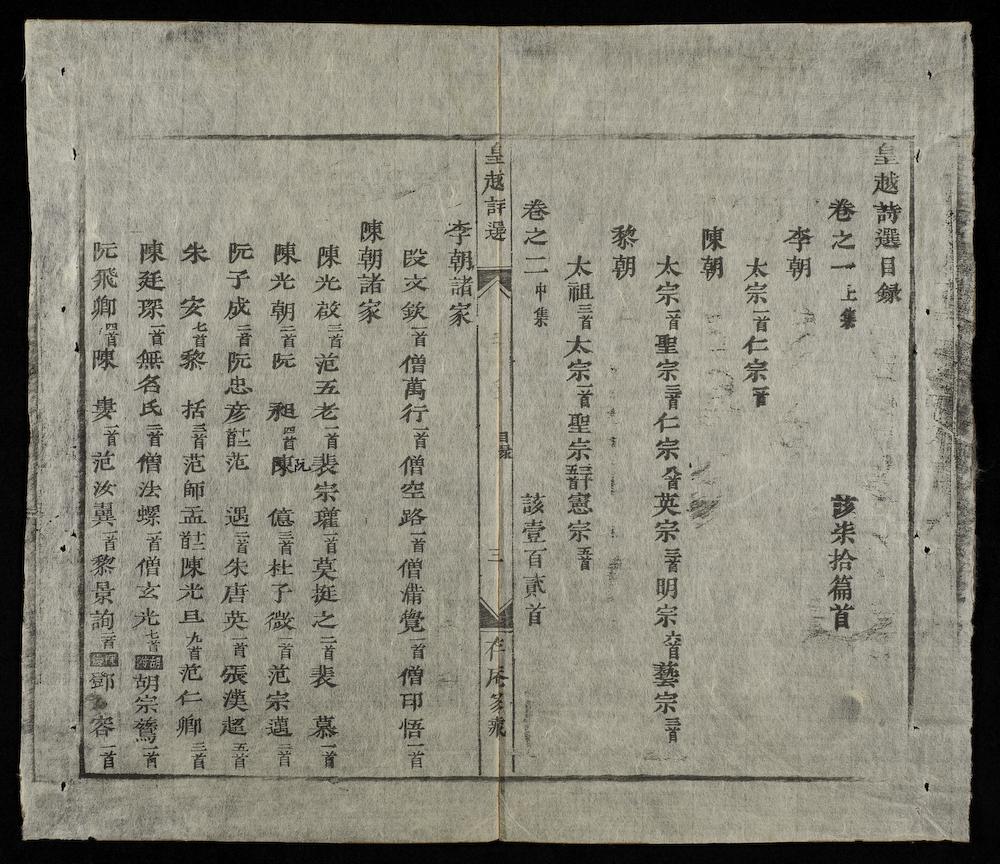 皇越詩選目録
卷之一 上集 該柒拾篇首
李朝
太宗一首仁宗二首
陳朝
太宗二首聖宗三首仁宗八首英宗三首明宗六首藝宗三首
黎朝
太祖三首太宗一首聖宗三十五首憲宗五首
卷之二 中集 該壹百貳首
皇越詩選 目録 三 存庵家藏
李朝諸家
段文欽一首僧萬行一首僧空路一首僧滿覺一首僧印悟一首
陳朝諸家
陳光啟三首范五老一首裴宗瓘一首莫挺之二首裴慕一首
陳光朝二首阮昶四首陳阮億三首杜子微一首范宗邁二首
阮子成三首阮忠彥十二首范遇二首朱唐英一首張漢超五首
朱安七首黎括三首范師孟十二首陳光旦九首范仁卿三首
陳廷琛一首無名氏三首僧法螺一首僧玄光七首胡附胡宗鷟一首
阮飛卿四首陳婁一首范汝翼一首黎景詢二首陳後鄧容一首